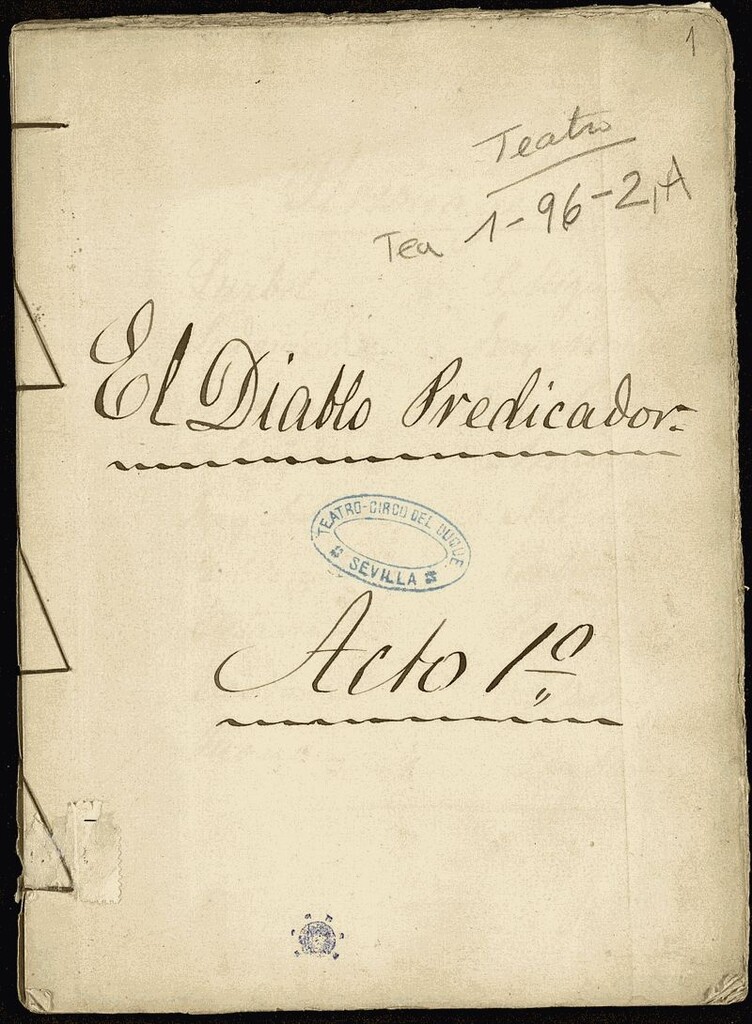 1
Teatro
Tea 1-96-2,A
El Diablo Predicador=
TEATRO-CIRCO DEL DUQUE
SEVILLA
Acto 1º